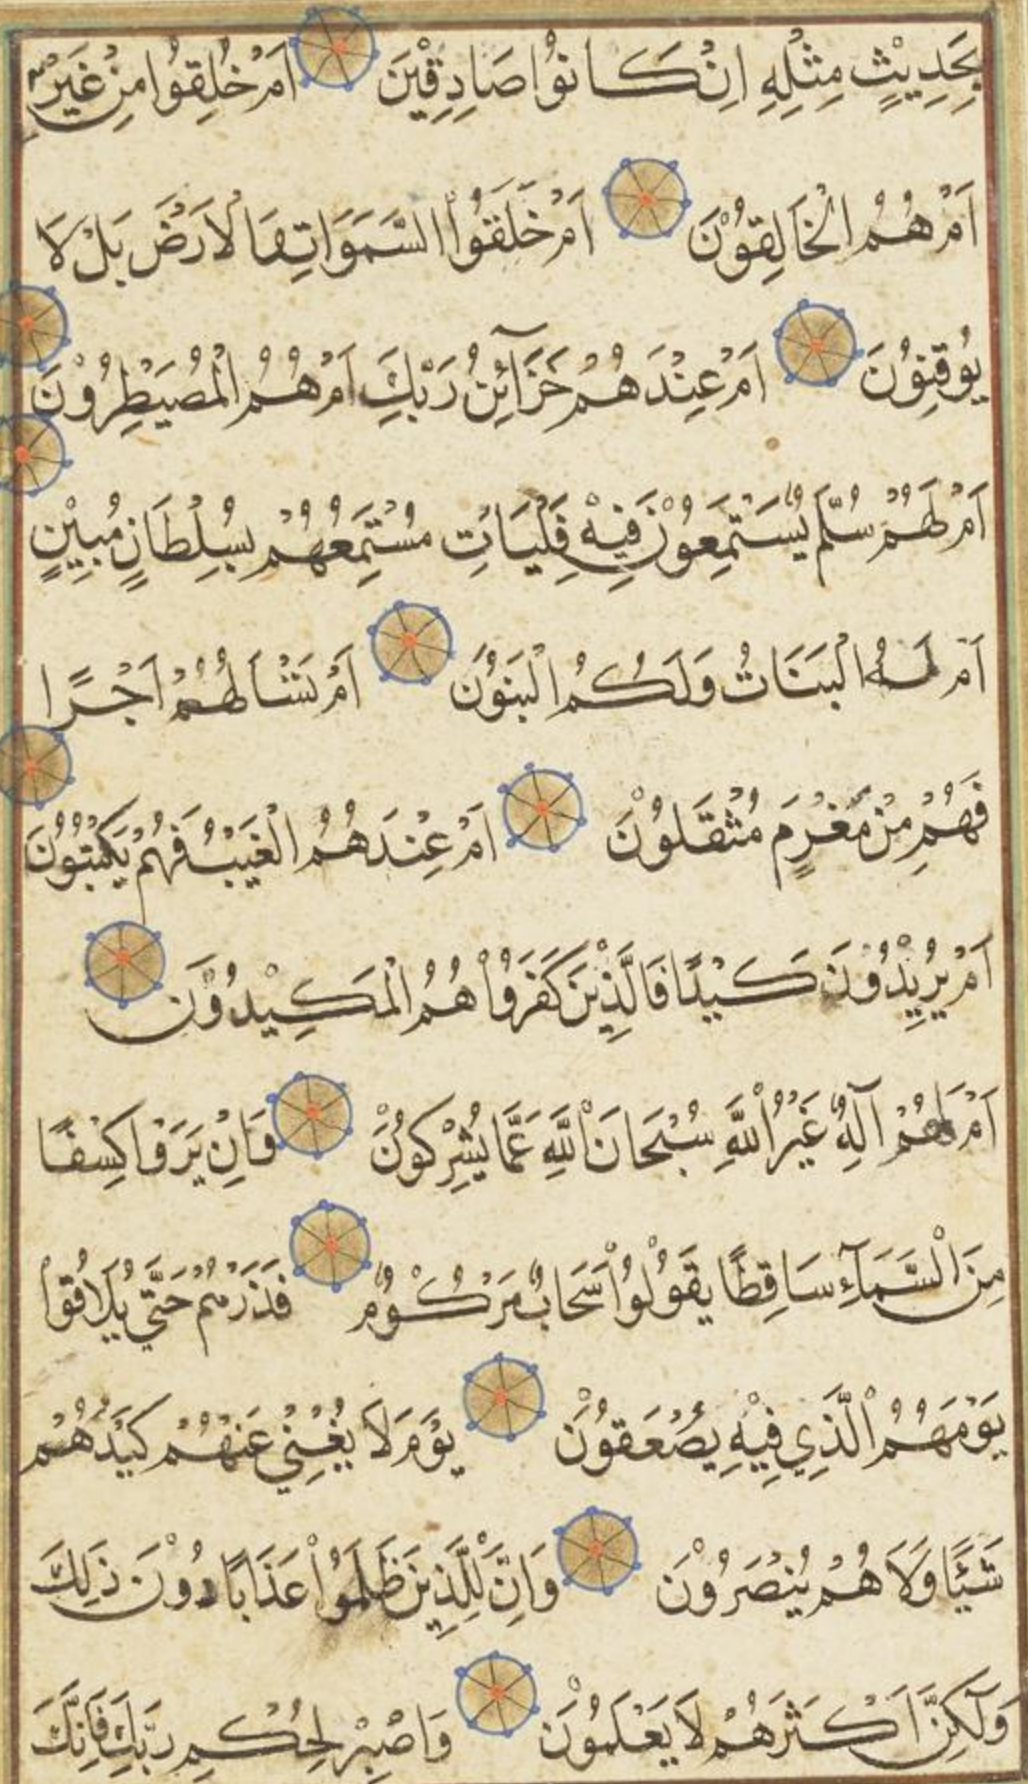 بِحَدِيْثٍ مِثْلِهِ اِنْ كَانُوْا صَادِقِيْنَ اَمْ خُلِقُوْا مِنْ غَيْرِ
اَمْ هُمُ الْخَالِقُوْنَ اَمْ خَلَقُوا السَّمَوَاتِ وَالْاَرْضَ بَلْ لَا
يُوْقِنُوْنَ اَمْ عِنْدَهُمْ خَزَآئِنُ رَبِّكَ اَمْ هُمُ الْمُصَيْطِرُوْنَ
اَمْ لَهُمْ سُلَّمٌ يَسْتَمِعُوْنَ فِيْهِ فَلْيَاْتِ مُسْتَمِعُهُمْ بِسُلْطَانٍ مُبِيْنٍ
اَمْ لَهُ الْبَنَاتُ وَلَكُمُ الْبَنُوْنَ اَمْ تَسْاَلُهُمْ اَجْرًا
فَهُمْ مِنْ مَغْرَمٍ مُثْقَلُوْنَ اَمْ عِنْدَهُمُ الْغَيْبُ فَهُمْ يَكْتُبُوْنَ
اَمْ يُرِيْدُوْنَ كَيْدًا فَالَّذِيْنَ كَفَرُوْا هُمُ الْمَكِيْدُوْنَ
اَمْ لَهُمْ اِلَهٌ غَيْرُ اللَّهِ سُبْحَانَ اللَّهِ عَمَّا يُشْرِكُوْنَ وَاِنْ يَرَوْا كِسْفًا
مِنَ السَّمَآءِ سَاقِطًا يَقُوْلُوْا سَحَابٌ مَرْكُوْمٌ فَذَرْهُمْ حَتَّى يُلَاقُوْا
يَوْمَهُمُ الَّذِي فِيْهِ يُصْعَقُوْنَ يَوْمَ لَا يُغْنِيْ عَنْهُمْ كَيْدُهُمْ
شَيْئًا وَلَا هُمْ يُنْصَرُوْنَ وَاِنَّ لِلَّذِيْنَ ظَلَمُوْا عَذَابًا دُوْنَ ذَلِكَ
وَلَكِنَّ اَكْثَرَهُمْ لَا يَعْلَمُوْنَ وَاصْبِرْ لِحُكْمِ رَبِّكَ فَاِنَّكَ